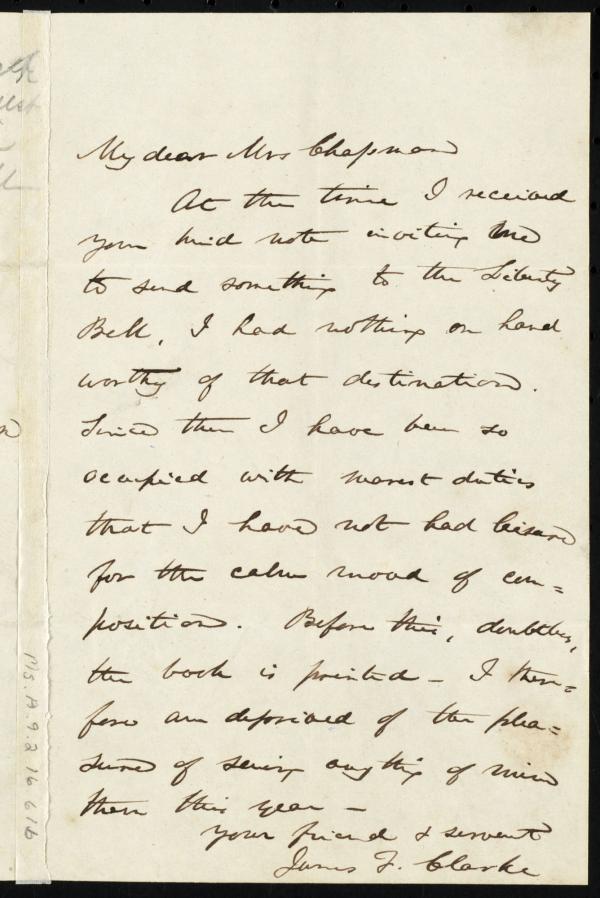 My dear Mrs Chapman
At the time I received
your kind note inviting me
to send something to the Liberty
Bell, I had nothing on hand
worthy of that destination.
Since then I have been so
occupied with nearest duties
that I have not had leisure
for the calm mood of com=
position. Before this, doubtless,
the book is printed - I there=
fore am deprived of the plea=
sure of seeing anything of mine
there this year -
Your friend & servant
James F. Clarke
Ms. A. 9. 2 16 61b